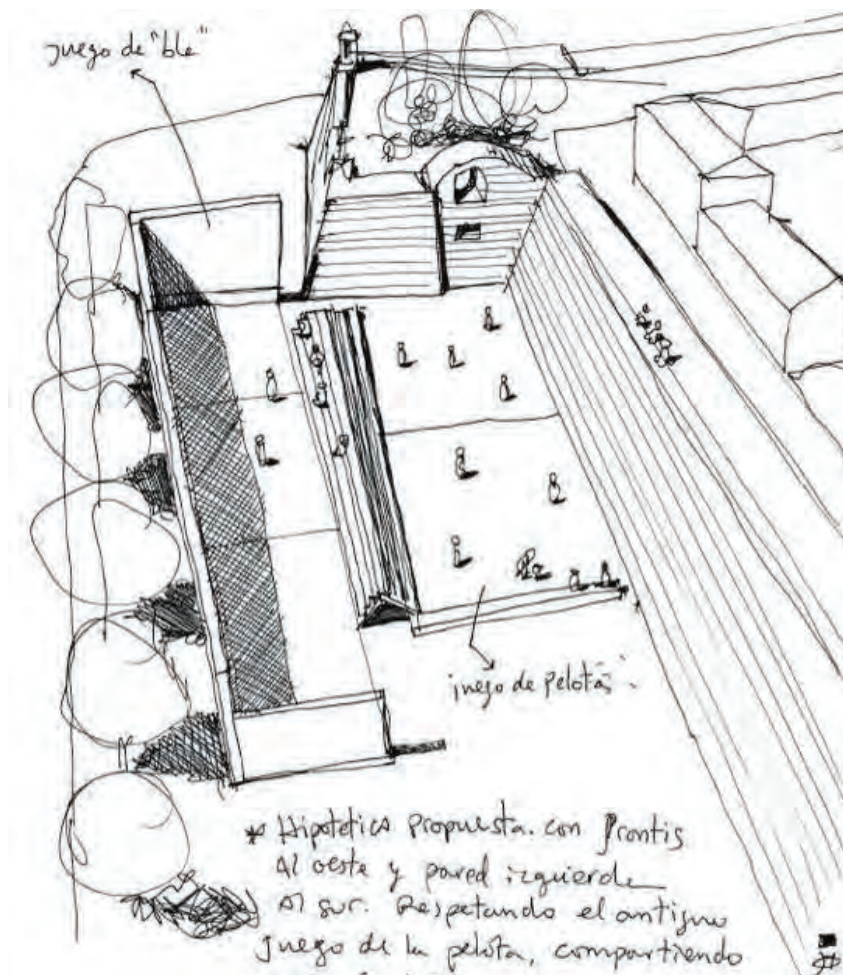 juego de "ble"
juego de pelotas.
* Hipotética Propuesta. con frontis
Al oeste y pared izquierda
Al sur. Respetando el antiguo
juego de la pelota, compartiendo